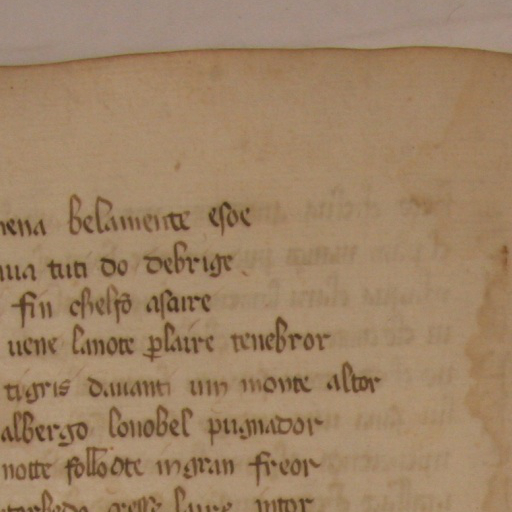 mena belamente esoe
uua tuti do debrige
fin chelso asaire
uene lanote plaire tenebror
tigris dauanti um monte altor
albergo louobel pugnador
notte ingran freor